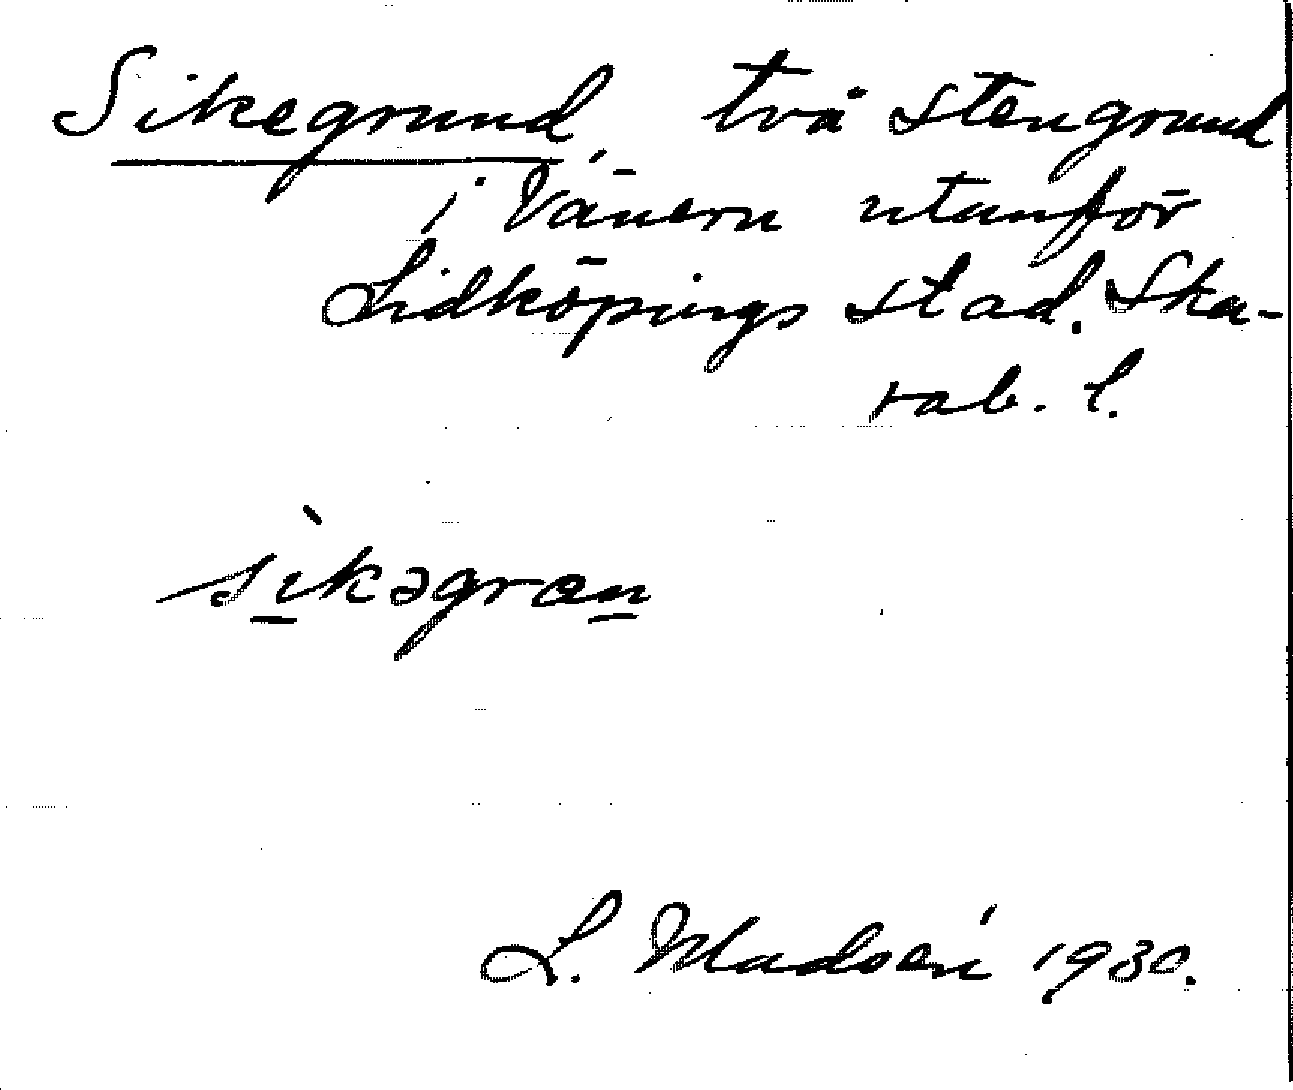 Sikegrund, två stengrund
i Vänern utanför
Lidköpings stad. Ska-
rab. l.
sìkəgrœn
L. Madsén 1930.